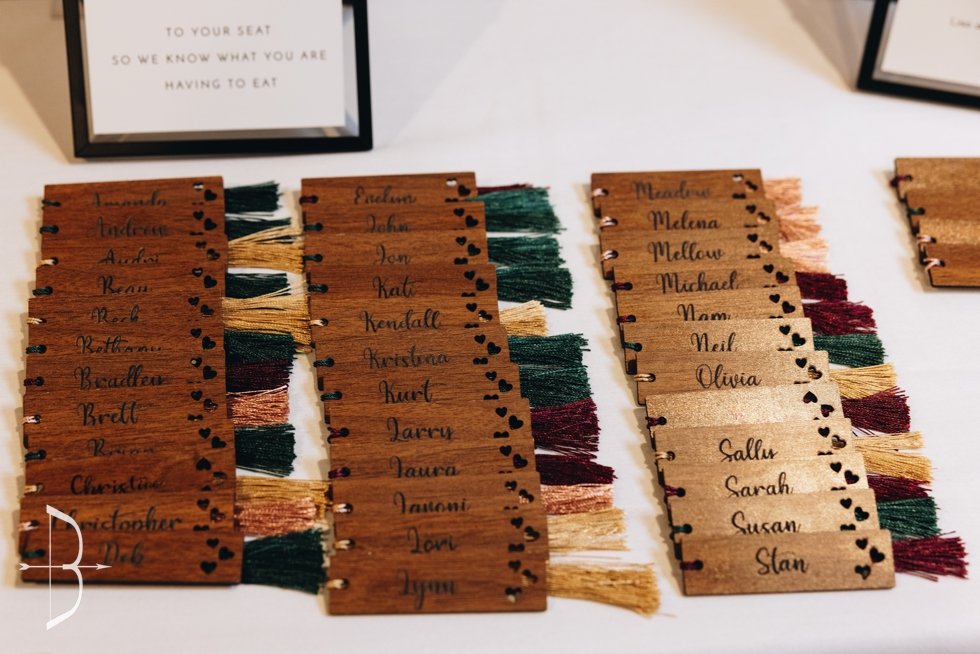 TO YOUR SEAT
SO WE KNOW WHAT YOU ARE
HAVING TO EAT
Amanda
Andrew
Audri
Beau
Bethany
Bradley
Brett
Christine
Christopher
Deb
Evelyn
John
Jon
Kati
Kendall
Kristina
Kurt
Larry
Laura
Lori
Lynn
Meadow
Melena
Mellow
Michael
Nam
Neil
Olivia
Sally
Sarah
Susan
Stan
B